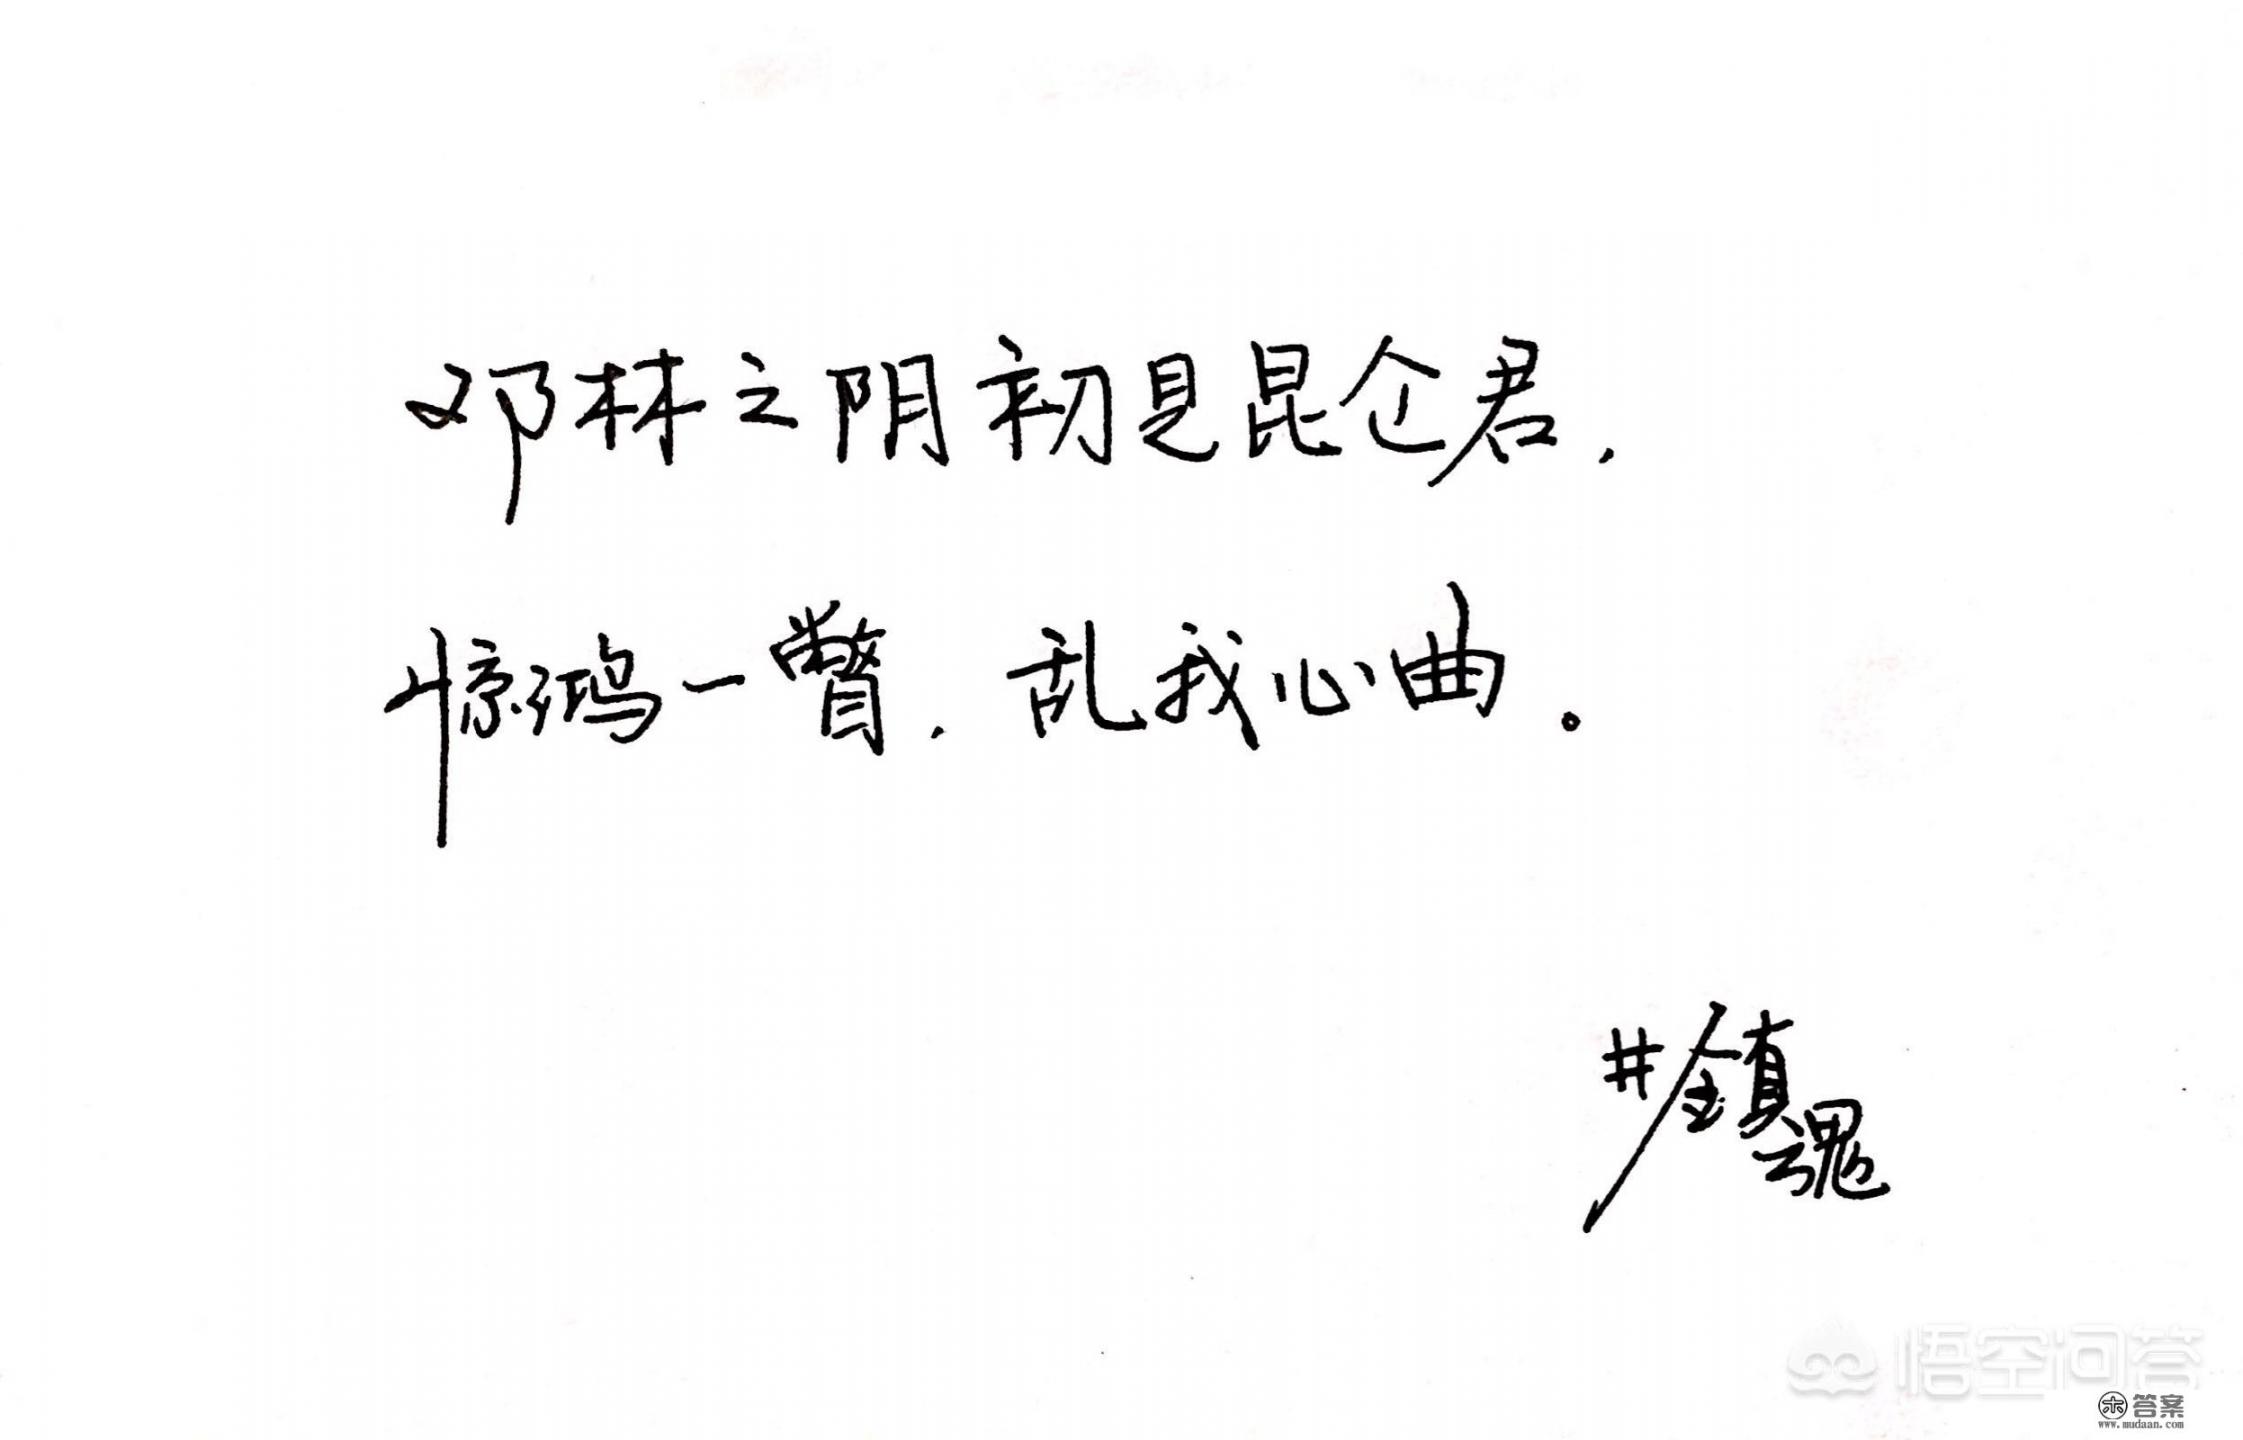 邓林之阴初是昆仑君，
惊鸿一瞥，乱我心曲。
#镇魂
悟空问答
答案
www.mudaan.com